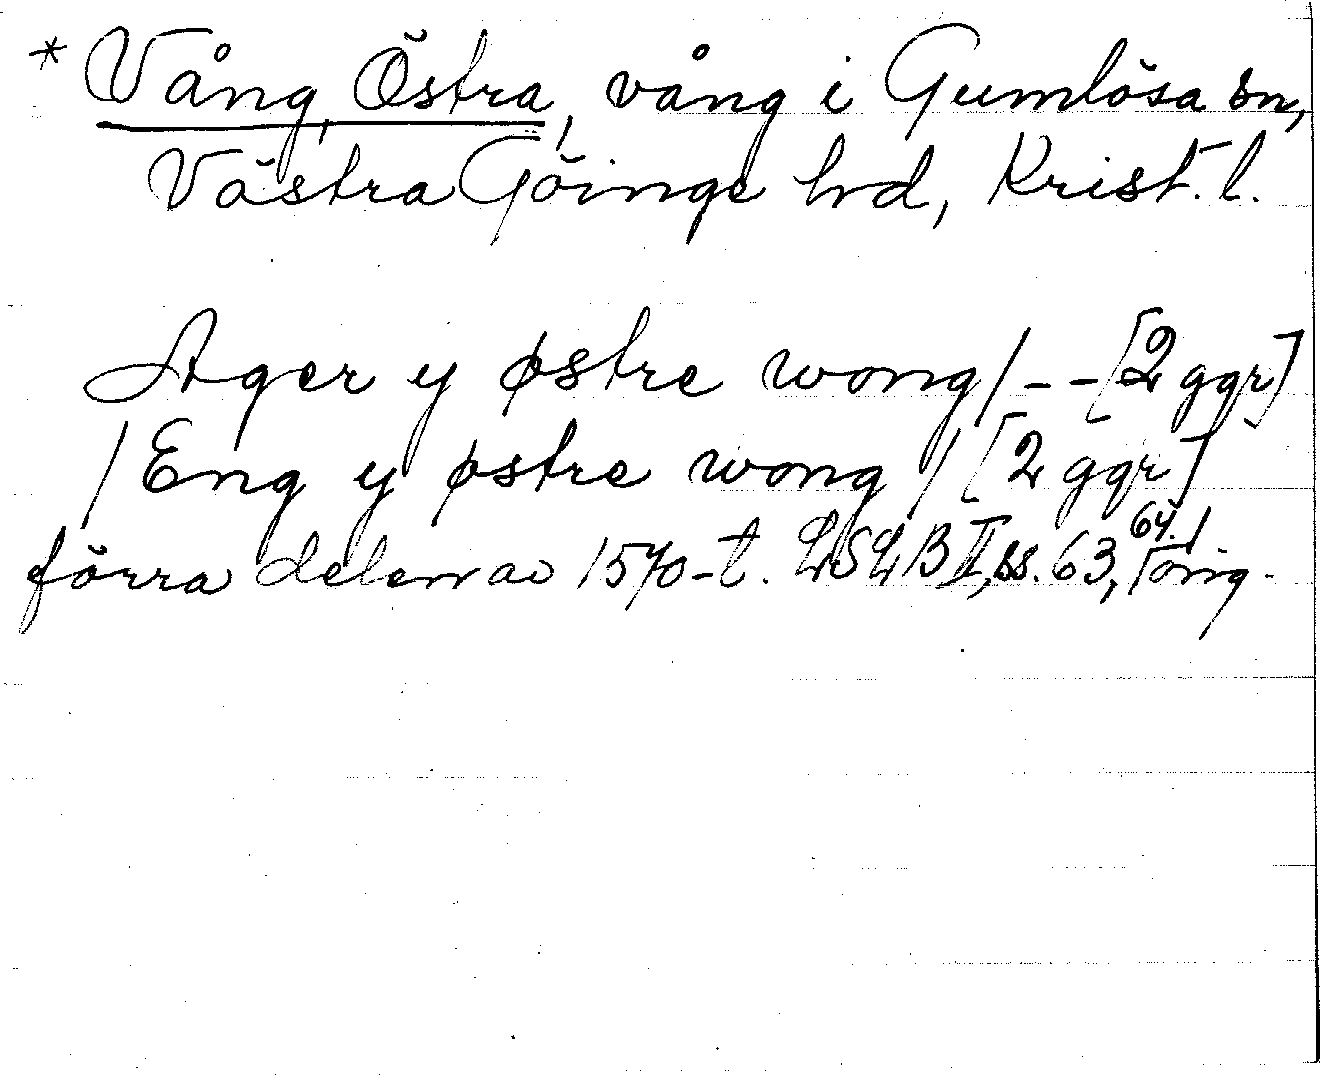 * Vång, Östra, vång i Gumlösa sn,
Västra Göinge hd, Krist. l.
Ager y østre wong/ - - [2 ggr]
/Eng y østre wong / [2 ggr]
förra delen av 1570-t. LSLB II, ss. 63, 64. Torig.